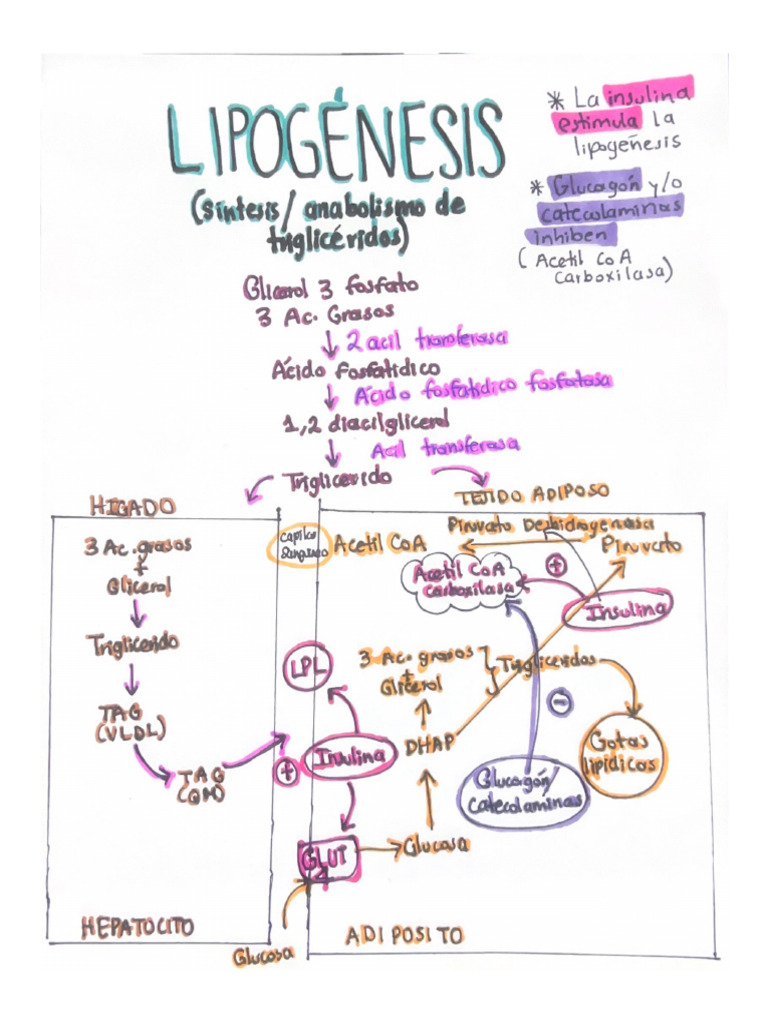 LIPOGÉNESIS
(síntesis/ anabolismo de
triglicéridos)
* La insulina
estimula la
lipogénesis
* Glucagón y/o
catecolaminas
inhiben
(Acetil CoA
carboxilasa)
Glicerol 3 fosfato
3 Ac. Grasos
2 acil transferasa
Ácido fosfatídico
Ácido fosfatídico fosfatasa
1,2 diacilglicerol
Acil transferasa
Triglicerido
HIGADO
TEJIDO ADIPOSO
3 Ac. grasos
+
Glicerol
Triglicerido
TAG
(VLDL)
TAG
HEPATOCITO
capilar
Sanguineo
Acetil CoA
Piruvato Deshidrogenasa
Piruvato
Acetil CoA
carboxilasa
+
Insulina
LPL
3 Ac. grasos
+
Glicerol
Trigliceridos
-
Gotas
lipídicas
DHAP
Insulina
+
Glucagón/
catecolaminas
GLUT 4
Glucosa
Glucosa
ADIPOSITO